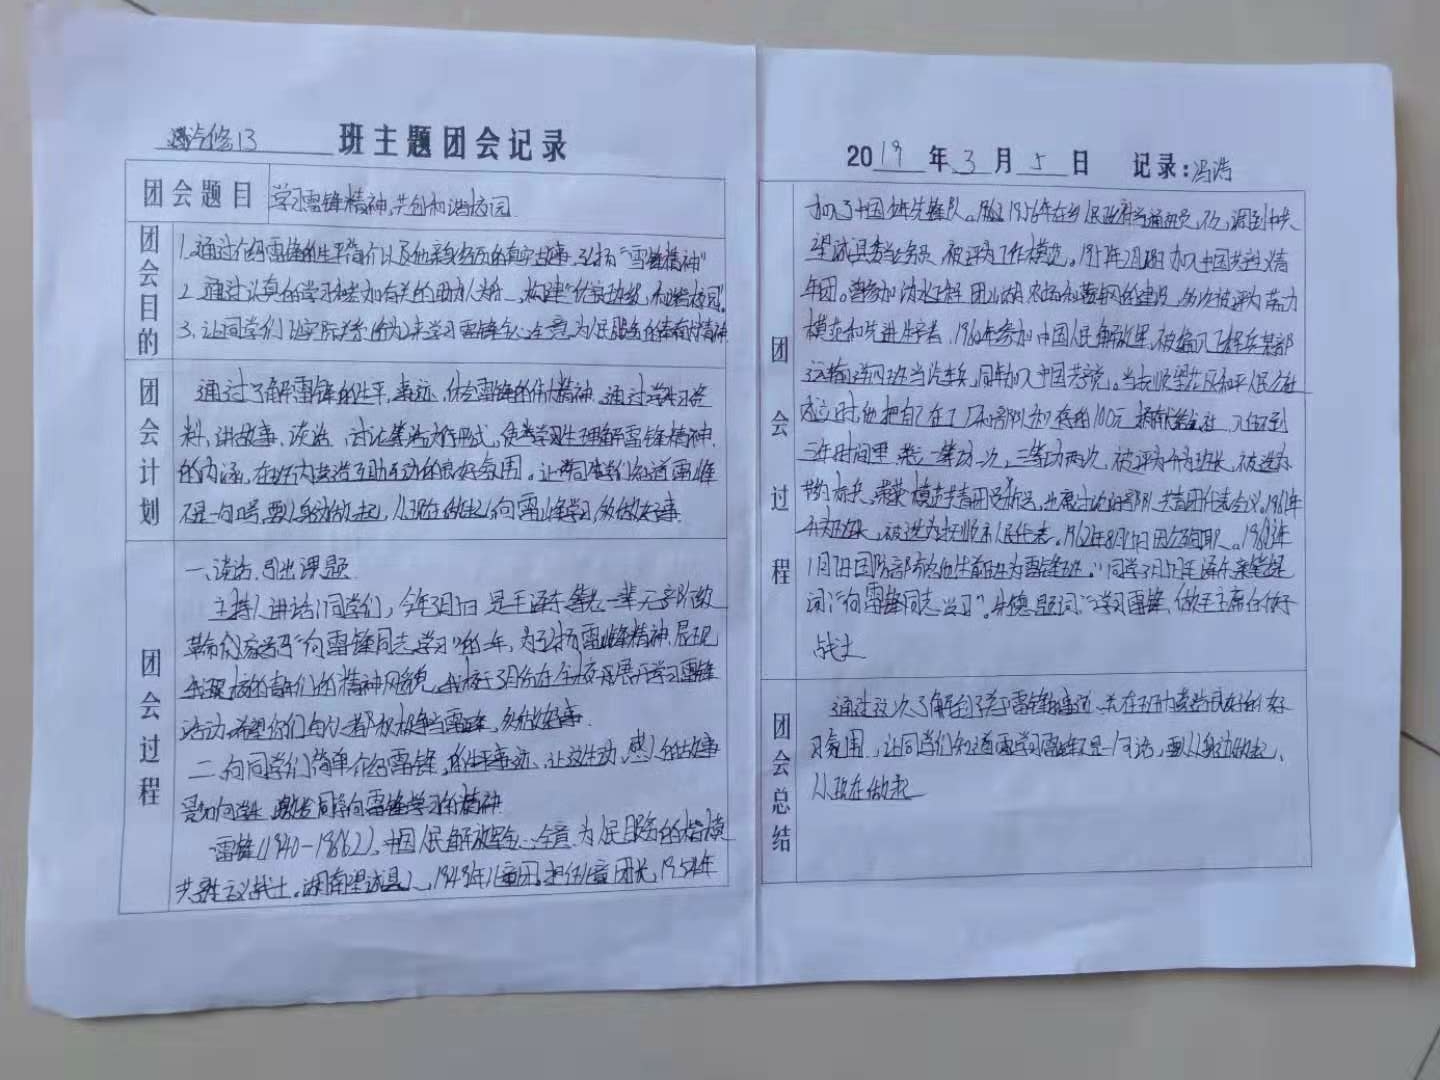 汽修13 班主题团会记录
团会题目 学习雷锋精神,共创和谐校园
团会目的
1.通过介绍雷锋的生平简介以及他亲身经历的真实故事,弘扬“雷锋精神”
2.通过认真的学习和参加有关的助人为乐,构建“优良班级,和谐校园”
3.让同学们 来学习雷锋全心全意为人民服务的 精神
团会计划
通过了解雷锋的生平,事迹,体会雷锋的伟大精神.通过学习资
料,讲故事,谈话,讨论等活动形式,使学生理解雷锋精神
的内涵,在班内营造互助互动的良好氛围。让同学们知道雷锋
不是一句 要从身边做起,从现在做起,向雷锋学习,多做好事.
团会过程
一、谈话,引出课题
主持人讲话:同学们,今年3月5日是毛泽东等老一辈无产阶级
革命家 “向雷锋同志学习”的 年,为弘扬雷锋精神,展现
我校的青年们的精神风貌,我校于3月份在全校开展学习雷锋
活动,希望你们每个人都积极争当雷锋,多做好事.
二、向同学们简单介绍雷锋,的生平事迹,让这生动,感人的故事
激发同学向雷锋学习的精神
雷锋(1940-1962),中国人民解放军全心全意为人民服务的楷模,
共产主义战士。湖南望城县人,1949年 儿童团,担任儿童团长,1954年
2019年3月5日 记录:冯浩
团会过程
加入了中国少年先锋队。1956年在乡人民政府当通讯员,不久,调到中共
望城县委当公务员,被评为工作模范。1957年2月8日加入中国共产主义青
年团。曾参加沩水工程、团山湖农场和鞍钢的建设,多次被评为劳力
模范和先进生产者。1960年参加中国人民解放军,被编入工程兵某部
运输连四班当汽车兵,同年加入中国共产党。当抚顺望花区和平人民公社
成立时,他把自己在工厂和部队 存的100元 捐献给公社 入伍不到
三年时间里,荣立二等功一次,三等功两次,被评为 被选为
节约标兵,荣获模范共青团员 出席过沈阳部队共青团代表会议。1961年
升为班长,被选为抚顺市人民代表。1962年8月15日因公殉职。1963年
1月7日国防部命名他生前班为“雷锋班”。同年3月5日毛泽东亲笔题
词:“向雷锋同志学习”。朱德题词:“学习雷锋,做毛主席的好
战士
团会总结
通过这次了解到了 雷锋的事迹,并在班内营造良好的好
习氛围,让同学们知道学习雷锋不是一句话,要从身边做起,
从现在做起